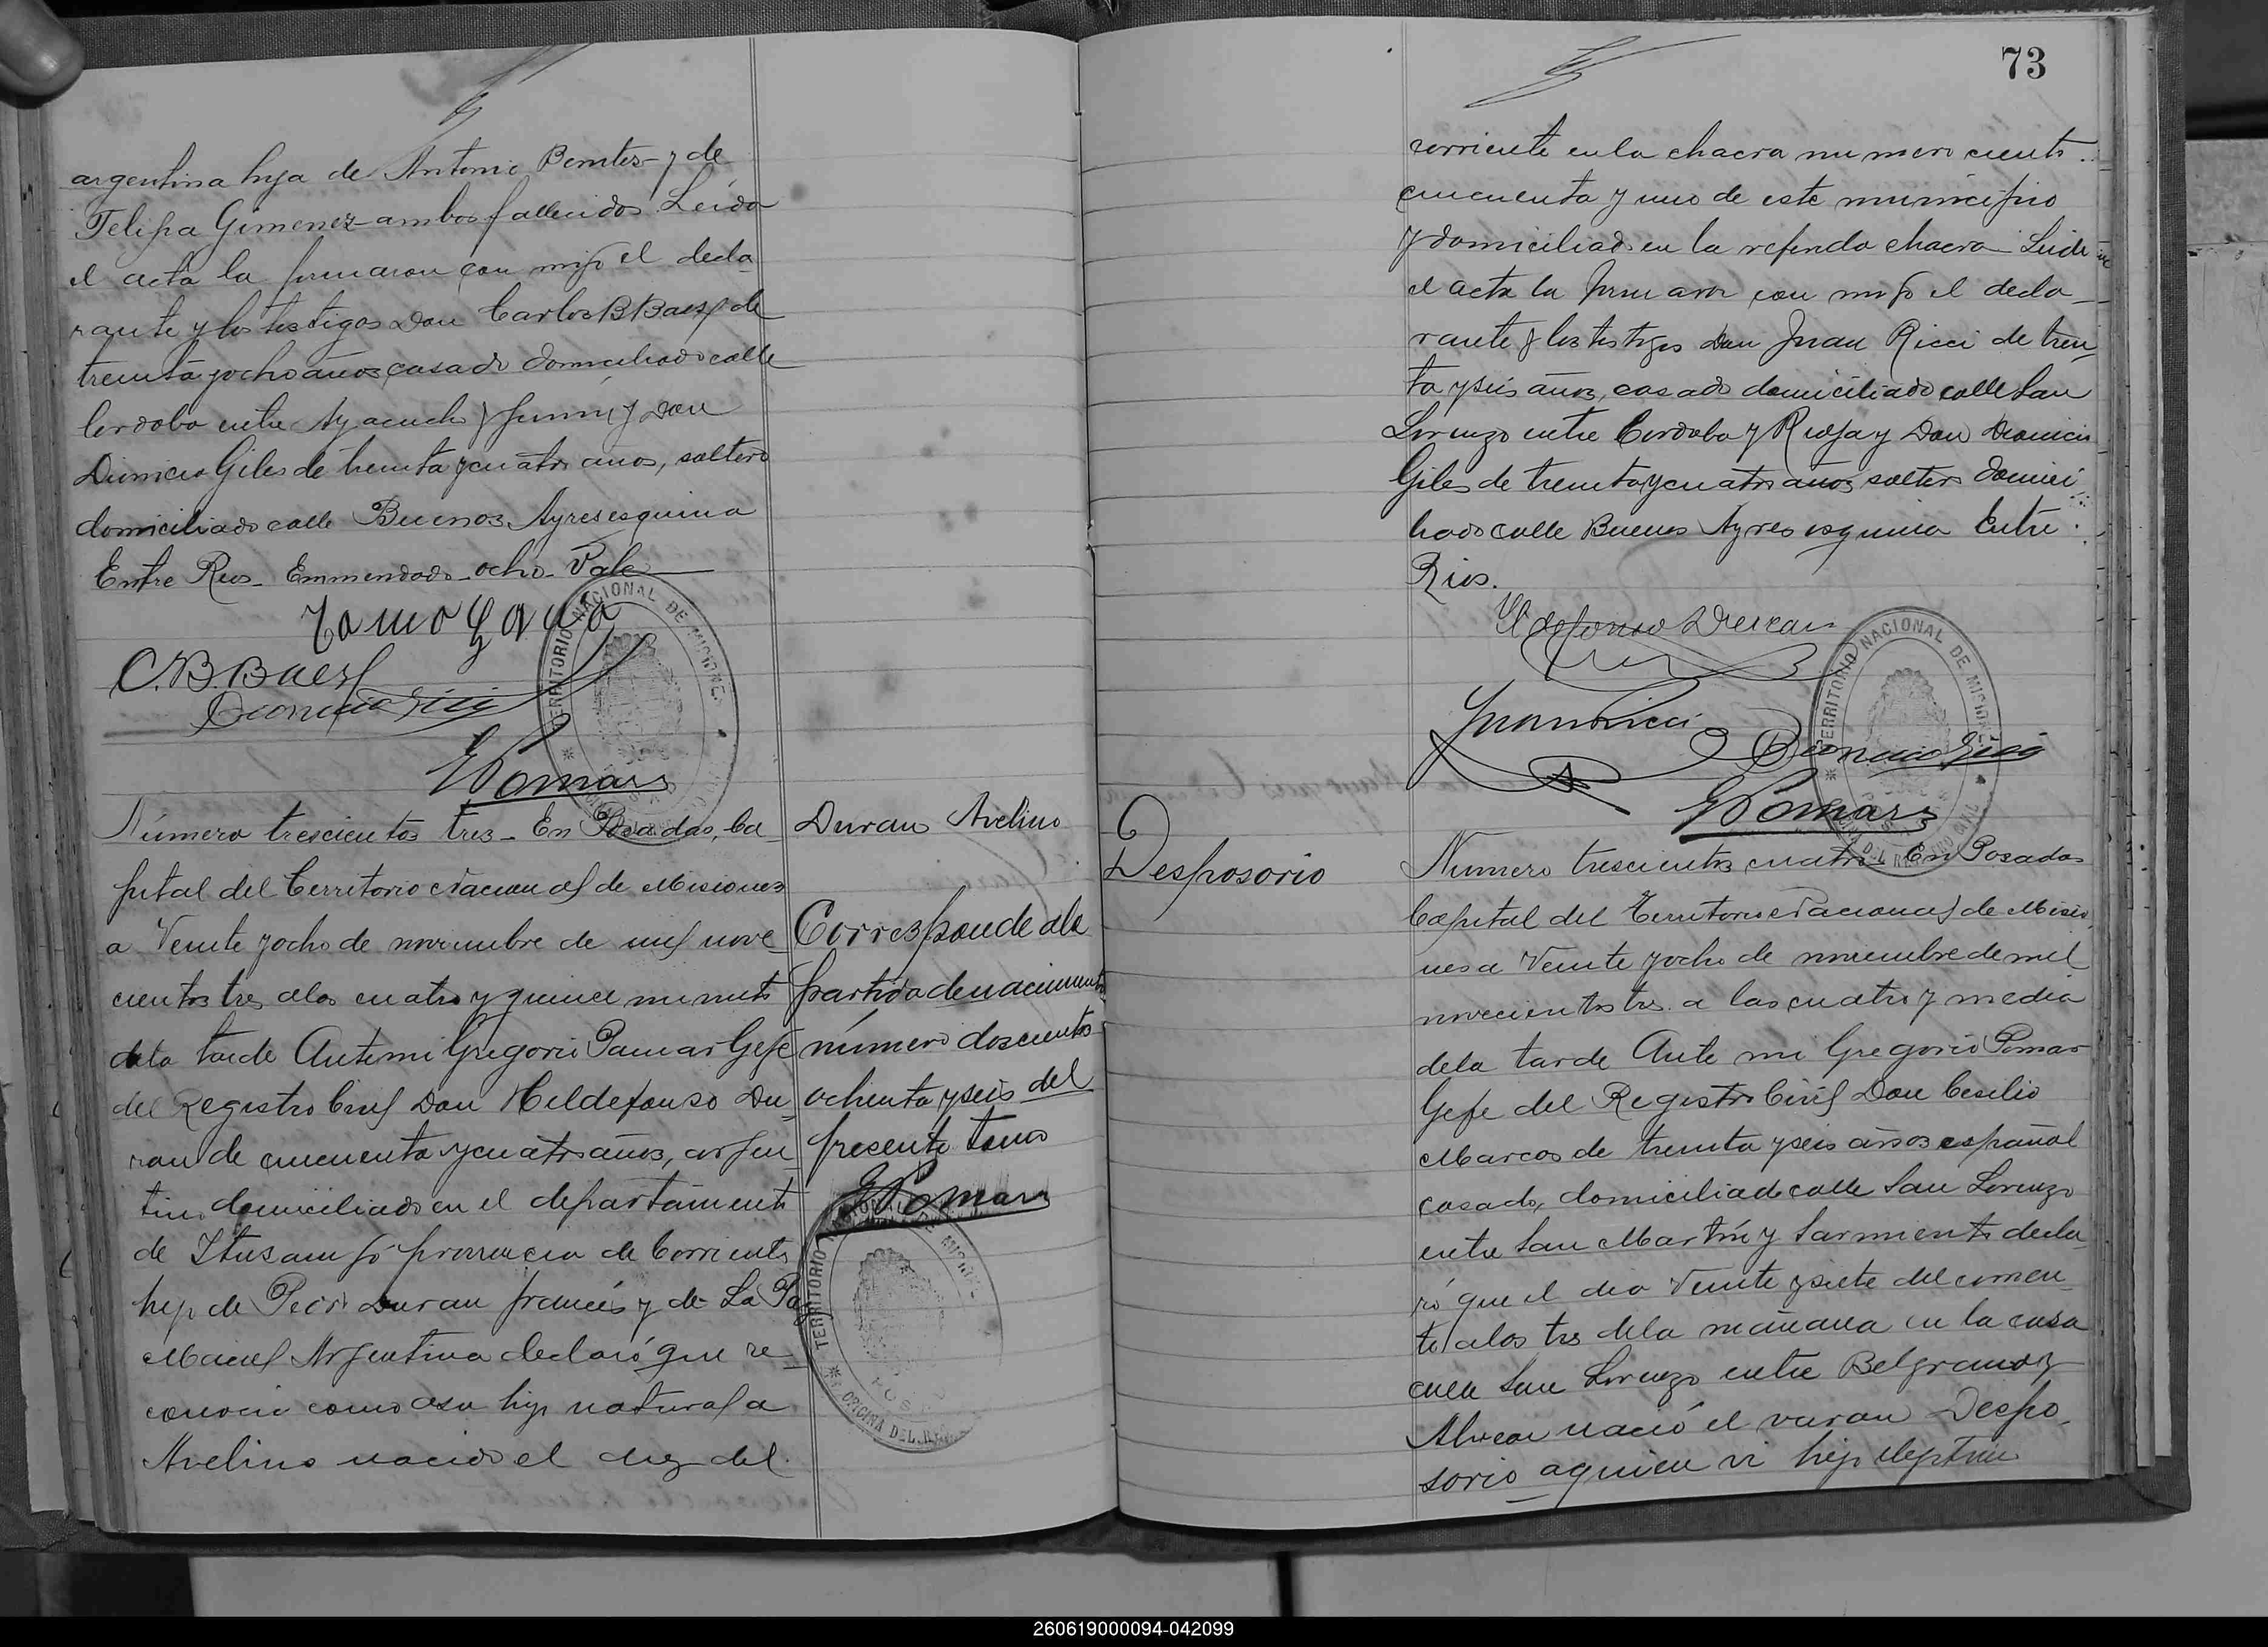 argentina hija de Antonio Benites y de
Felipa Gimenez ambos fallecidos. Leida
el acta la firmaron con migo el decla
rante y los testigos Don Carlos B Baez de
treinta y ocho años casado domiciliado calle
Cordoba entre Ayacucho y Junin y Don
Dionicio Giles de treinta y cuatro anos, soltero
domiciliado calle Buenos Ayres esquina
Entre Rios - Enmendado - ocho - Vale
C.B. Baez
Dionicio Giles
G Pomar
TERRITORIO NACIONAL DE MISIONES
Número trescientos tres - En Posadas, Ca
pital del Territorio Nacional de Misiones
a Veinte y ocho de noviembre de mil nove
cientos tres a las cuatro y quince minutos
de la tarde Ante mi Gregorio Pomar Gefe
del Registro Civil Don Hildefonso Du
ran de cincuenta y cuatro años, argen
tino domiciliado en el departamento
de Itusaingó provincia de Corrientes
hijo de Pedro Duran francés y de La Paz
Maciel Argentina declaró que re
conocia como a su hijo natural a
Avelino nacido el diez del
Duran Avelino
Corresponde a la
partida de nacimiento
número doscientos
ochenta y seis del
presente tomo
G Pomar
TERRITORIO NACIONAL DE MISIONES
OFICINA DEL
73
corriente en la chacra numero ciento
cincuenta y uno de este municipio
y domiciliado en la referida chacra Leida
el acta la firmaron con migo el decla
rante y los testigos Don Juan Ricci de trein
ta y seis años, casado domiciliado calle San
Lorenzo entre Cordoba y Rioja y Don Dionicio
Giles de treinta y cuatro años soltero domici
liado calle Buenos Ayres esquina Entre
Rios.
Ildefonso Duran
Juan Ricci
Dionicio Giles
G Pomar
TERRITORIO NACIONAL DE MISIONES
DEL REGISTRO CIVIL
Desposorio
Numero trescientos cuatro - En Posadas
Capital del Territorio Nacional de Misio
nes a Veinte y ocho de noviembre de mil
novecientos tres a las cuatro y media
de la tarde Ante mi Gregorio Pomar
Gefe del Registro Civil Don Cesilio
Marcos de treinta y seis años español
casado, domiciliado calle San Lorenzo
entre San Martín y Sarmiento decla
ró que el dia Veinte y siete del corrien
te a las tres de la mañana en la casa
calle San Lorenzo entre Belgrano y
Alvear nació el varon Despo
sorio a quien vi hijo legitimo